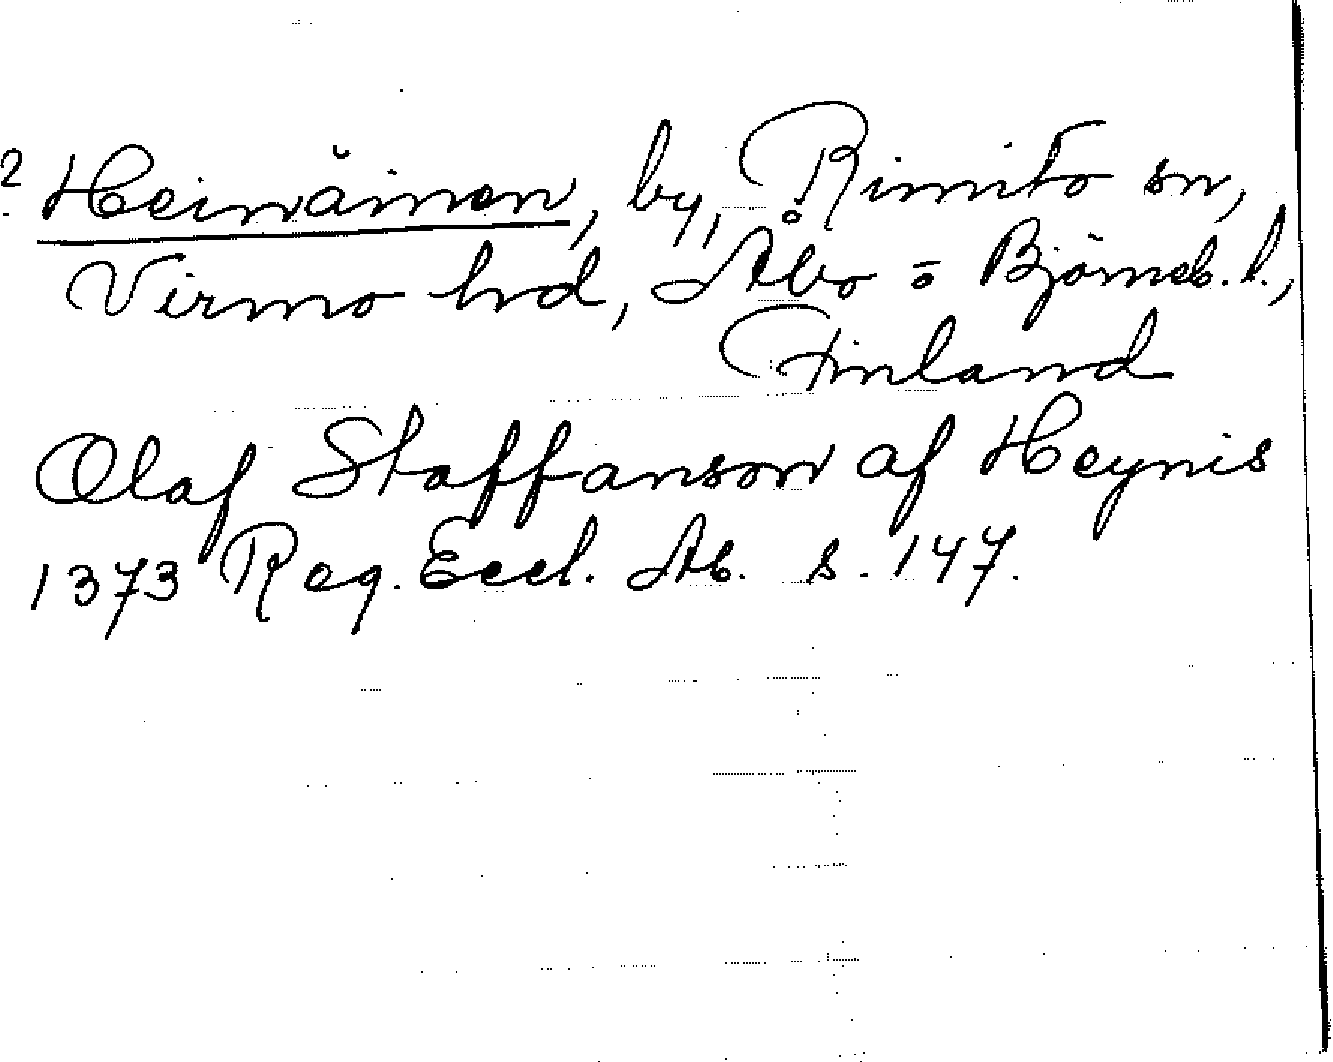 ? Heinäinen, by, Rimito sn,
Virmo hd, Åbo o Björneb. l.,
Finland
Olaf Staffanson af Heynis
1373 Reg. Eccl. Ab. s. 147.